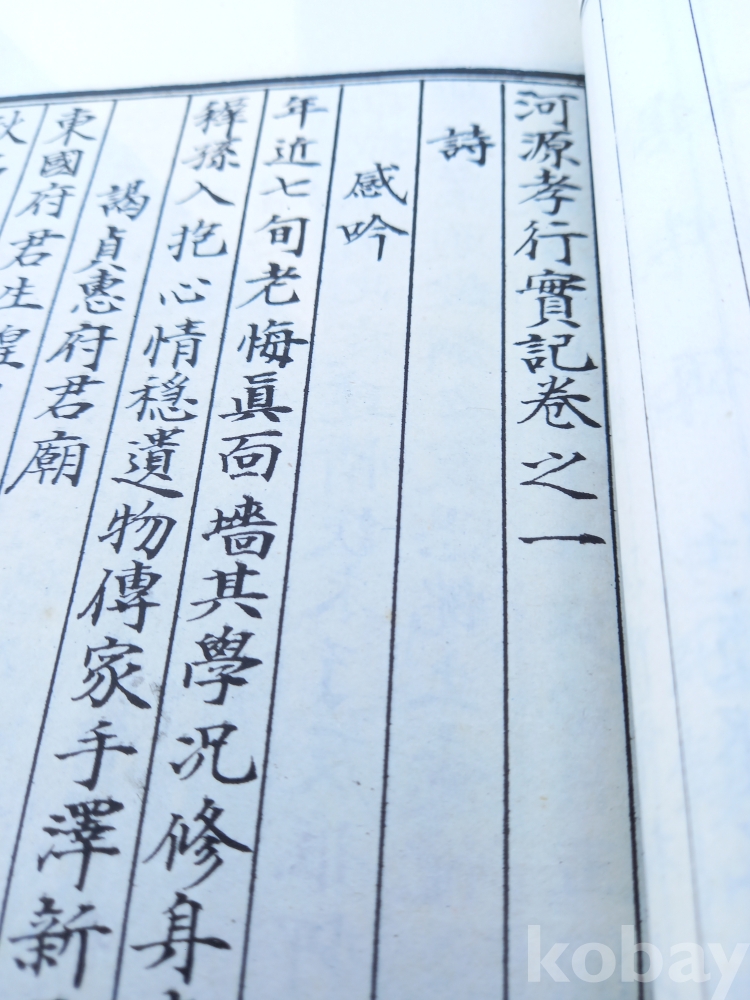 河源孝行實記卷之一
詩
感吟
年近七旬老悔眞面墻其學况修身
稺孫入抱心情穩遺物傳家手澤新
謁貞惠府君廟
東國府君生
kobay